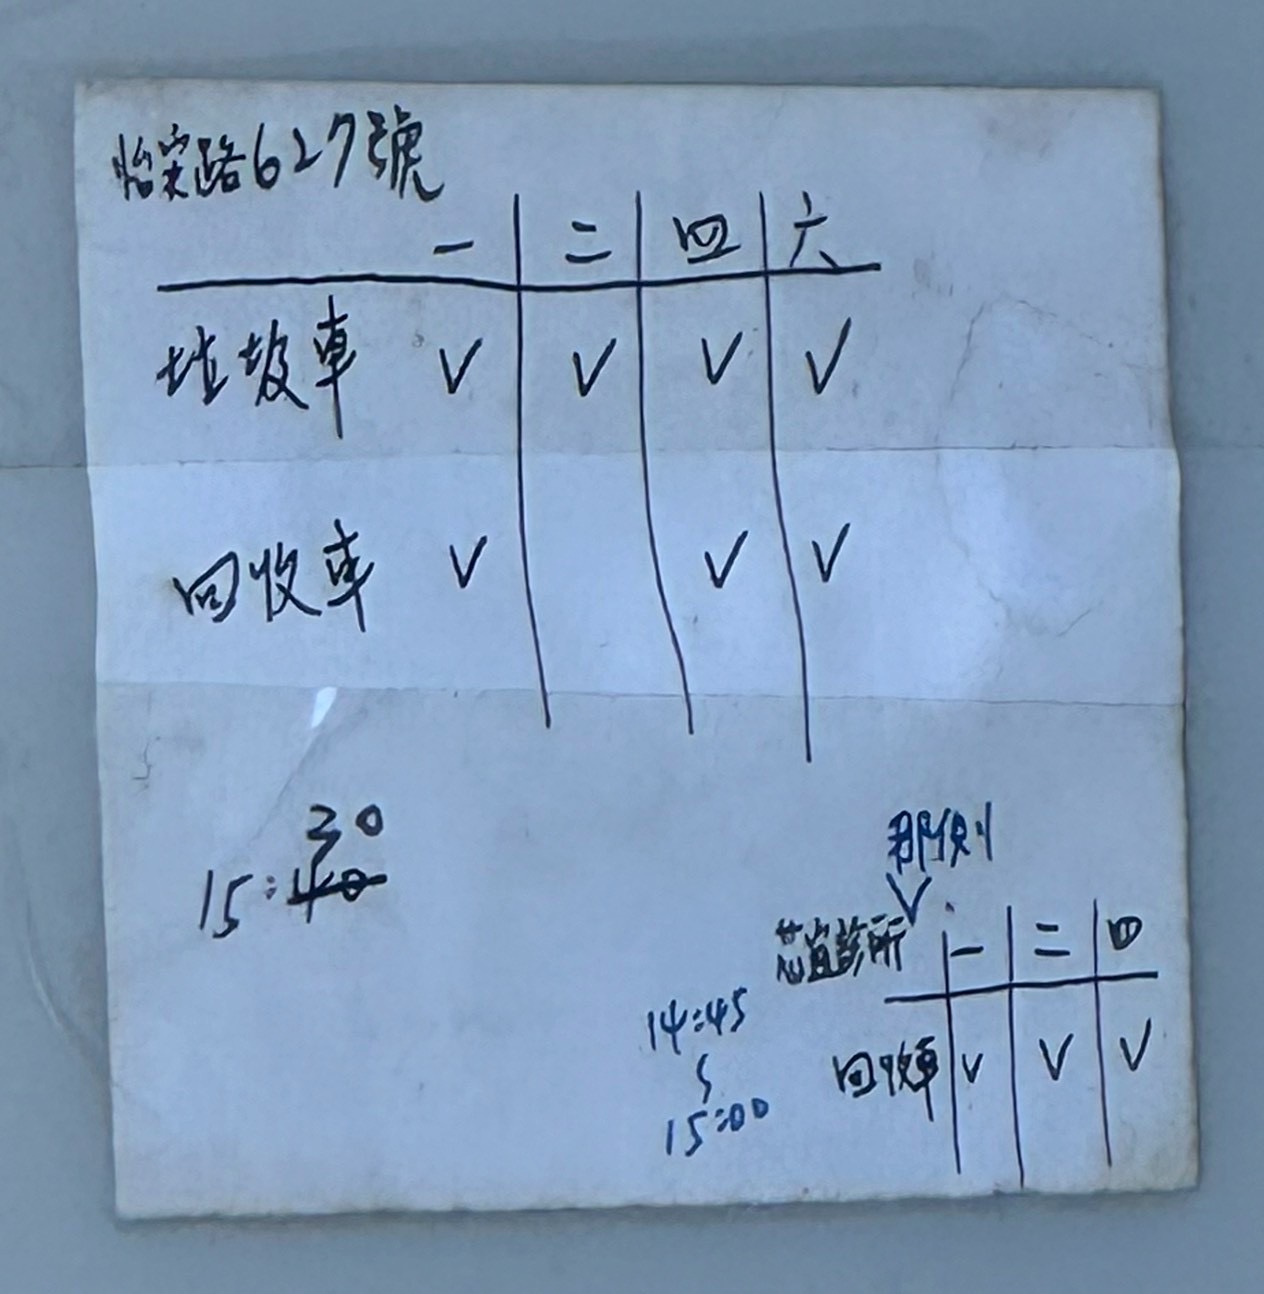 怡安路627號
一 二 四 六
垃圾車 V V V V
回收車 V V V
30
15:40
那側
V
芯宜診所 一 二 四
14:45
〜
15:00
回收車 V V V